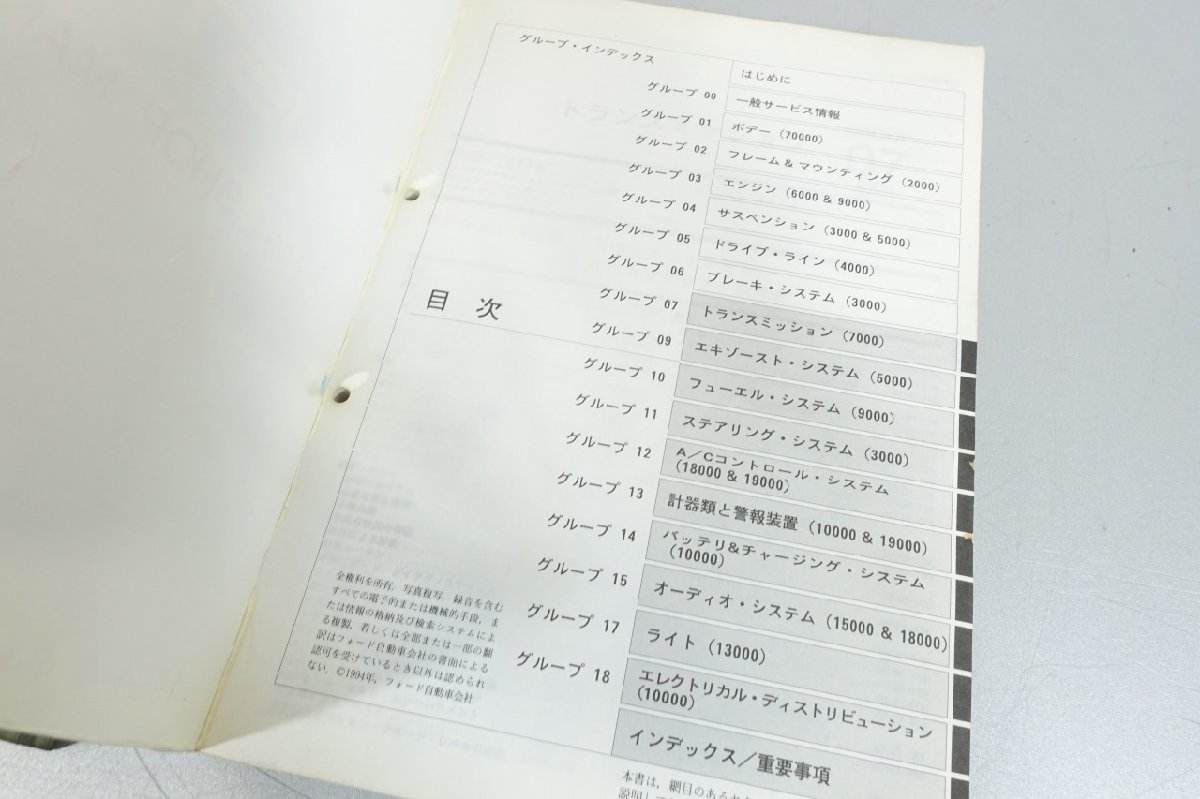 グループ・インデックス はじめに
グループ 00 一般サービス情報
グループ 01 ボデー (70000)
グループ 02 フレーム & マウンティング (2000)
グループ 03 エンジン (6000 & 9000)
グループ 04 サスペンション (3000 & 5000)
グループ 05 ドライブ・ライン (4000)
グループ 06 ブレーキ・システム (3000)
グループ 07 トランスミッション (7000)
グループ 09 エキゾースト・システム (5000)
グループ 10 フューエル・システム (9000)
グループ 11 ステアリング・システム (3000)
グループ 12 A/Cコントロール・システム
(18000 & 19000)
グループ 13 計器類と警報装置 (10000 & 19000)
グループ 14 バッテリ&チャージング・システム
(10000)
グループ 15 オーディオ・システム (15000 & 18000)
グループ 17 ライト (13000)
グループ 18 エレクトリカル・ディストリビューション
(10000)
インデックス/重要事項
目次
全権利を所有. 写真複写, 録音を含む
すべての電子的または機械的手段, ま
たは情報の格納及び検索システムによ
る複製, 若しくは全部または一部の翻
訳はフォード自動車会社の書面による
認可を受けているとき以外は認められ
ない. ©1994年, フォード自動車会社
本書は, 網目のある
説明して